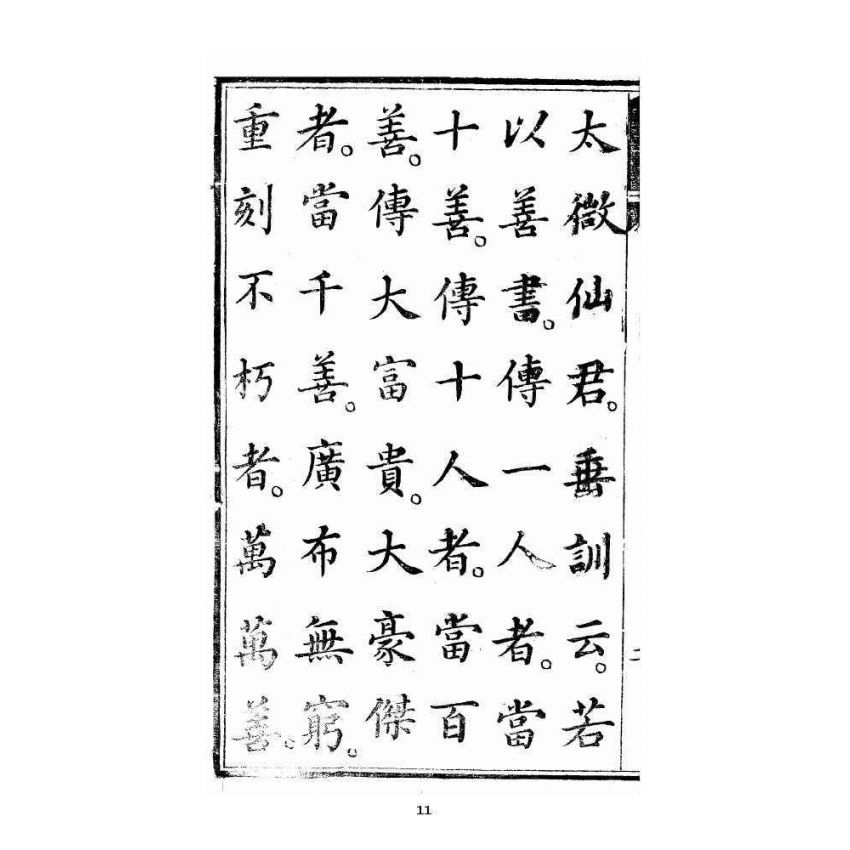 太微仙君。垂訓云。若
以善書。傳一人者。當
十善。傳十人者。當百
善。傳大富貴。大豪傑
者。當千善。廣布無窮。
重刻不朽者。萬萬善。
11